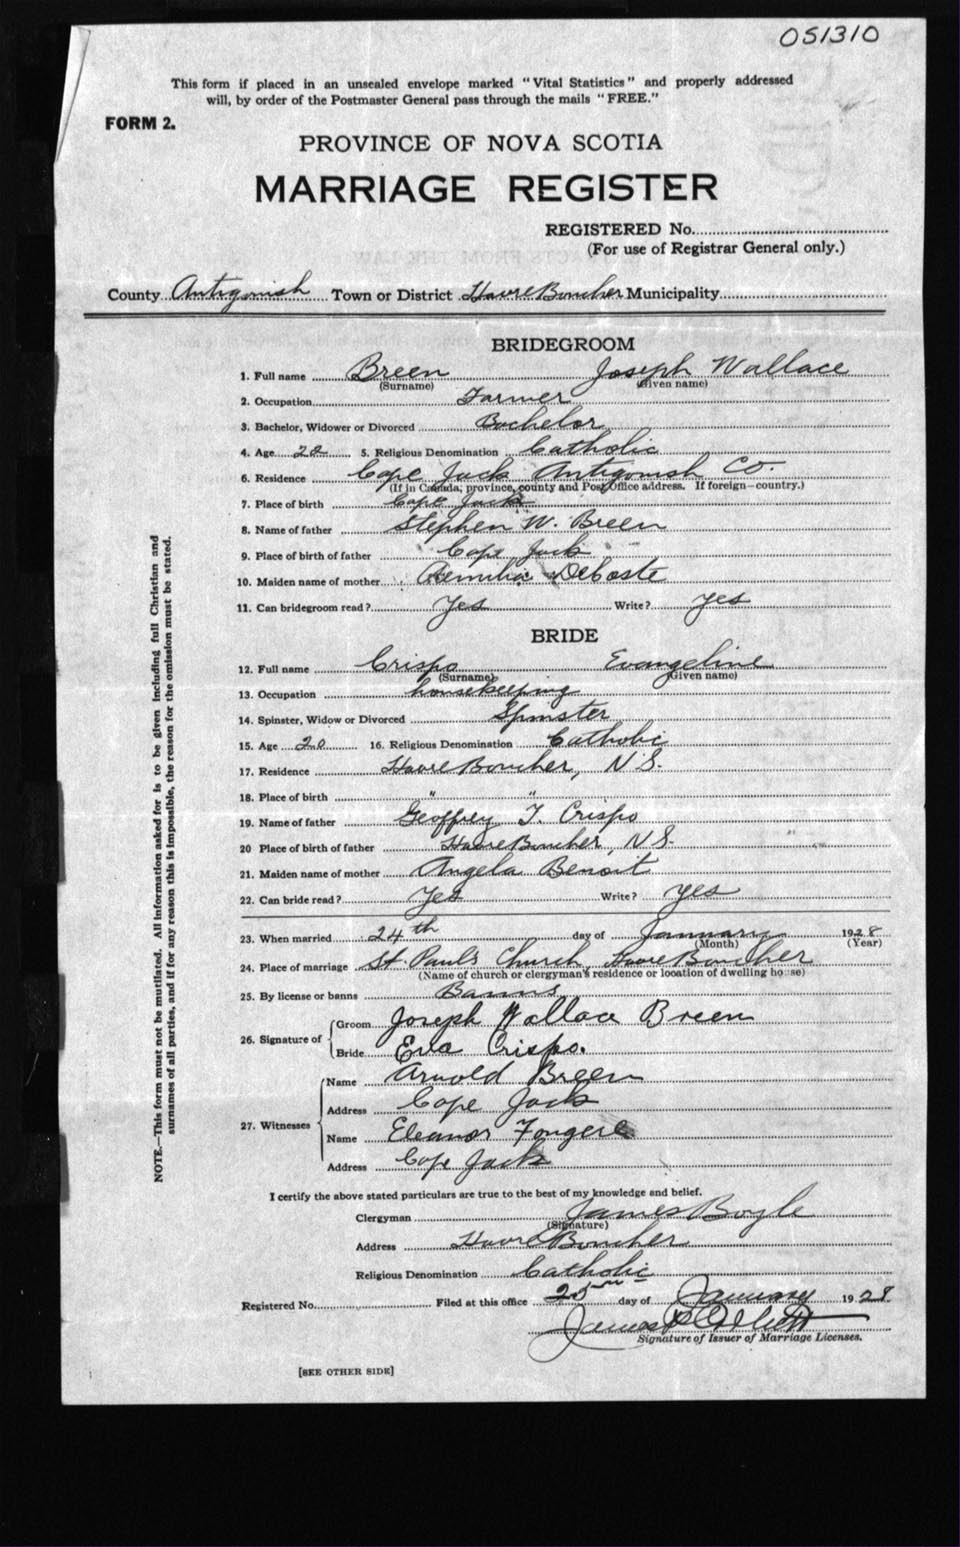 051310
This form if placed in an unsealed envelope marked "Vital Statistics" and properly addressed
will, by order of the Postmaster General pass through the mails "FREE."
FORM 2.
PROVINCE OF NOVA SCOTIA
MARRIAGE REGISTER
REGISTERED No.
(For use of Registrar General only.)
County Antigonish Town or District Havre Boucher Municipality
BRIDEGROOM
1. Full name Breen Joseph Wallace
(Surname) (Given name)
2. Occupation Farmer
3. Bachelor, Widower or Divorced Bachelor
4. Age 28 5. Religious Denomination Catholic
6. Residence Cape Jack Antigonish Co.
(If in Canada, province, county and Post Office address. If foreign—country.)
7. Place of birth Cape Jack
8. Name of father Stephen W. Breen
9. Place of birth of father Cape Jack
10. Maiden name of mother DeCoste
11. Can bridegroom read? Yes Write? Yes
BRIDE
12. Full name Crispo Evangeline
(Surname) (Given name)
13. Occupation housekeeping
14. Spinster, Widow or Divorced Spinster
15. Age 20 16. Religious Denomination Catholic
17. Residence Havre Boucher, N.S.
18. Place of birth " "
19. Name of father Geoffrey T. Crispo
20 Place of birth of father Havre Boucher, N.S.
21. Maiden name of mother Angela Benoit
22. Can bride read? Yes Write? Yes
23. When married 24th day of January 1928
(Month) (Year)
24. Place of marriage St. Paul's Church, Havre Boucher
(Name of church or clergyman's residence or location of dwelling house)
25. By license or banns Banns
26. Signature of Groom Joseph Wallace Breen
Bride Eva Crispo.
27. Witnesses Name Arnold Breen
Address Cape Jack
Name Eleanor Fougere
Address Cape Jack
I certify the above stated particulars are true to the best of my knowledge and belief.
Clergyman James Boyle
(Signature)
Address Havre Boucher
Religious Denomination Catholic
Registered No. Filed at this office 25th day of January 1928
James
Signature of Issuer of Marriage Licenses.
[SEE OTHER SIDE]
NOTE.—This form must not be mutilated. All information asked for is to be given including full Christian and
surnames of all parties, and if for any reason this is impossible, the reason for the omission must be stated.